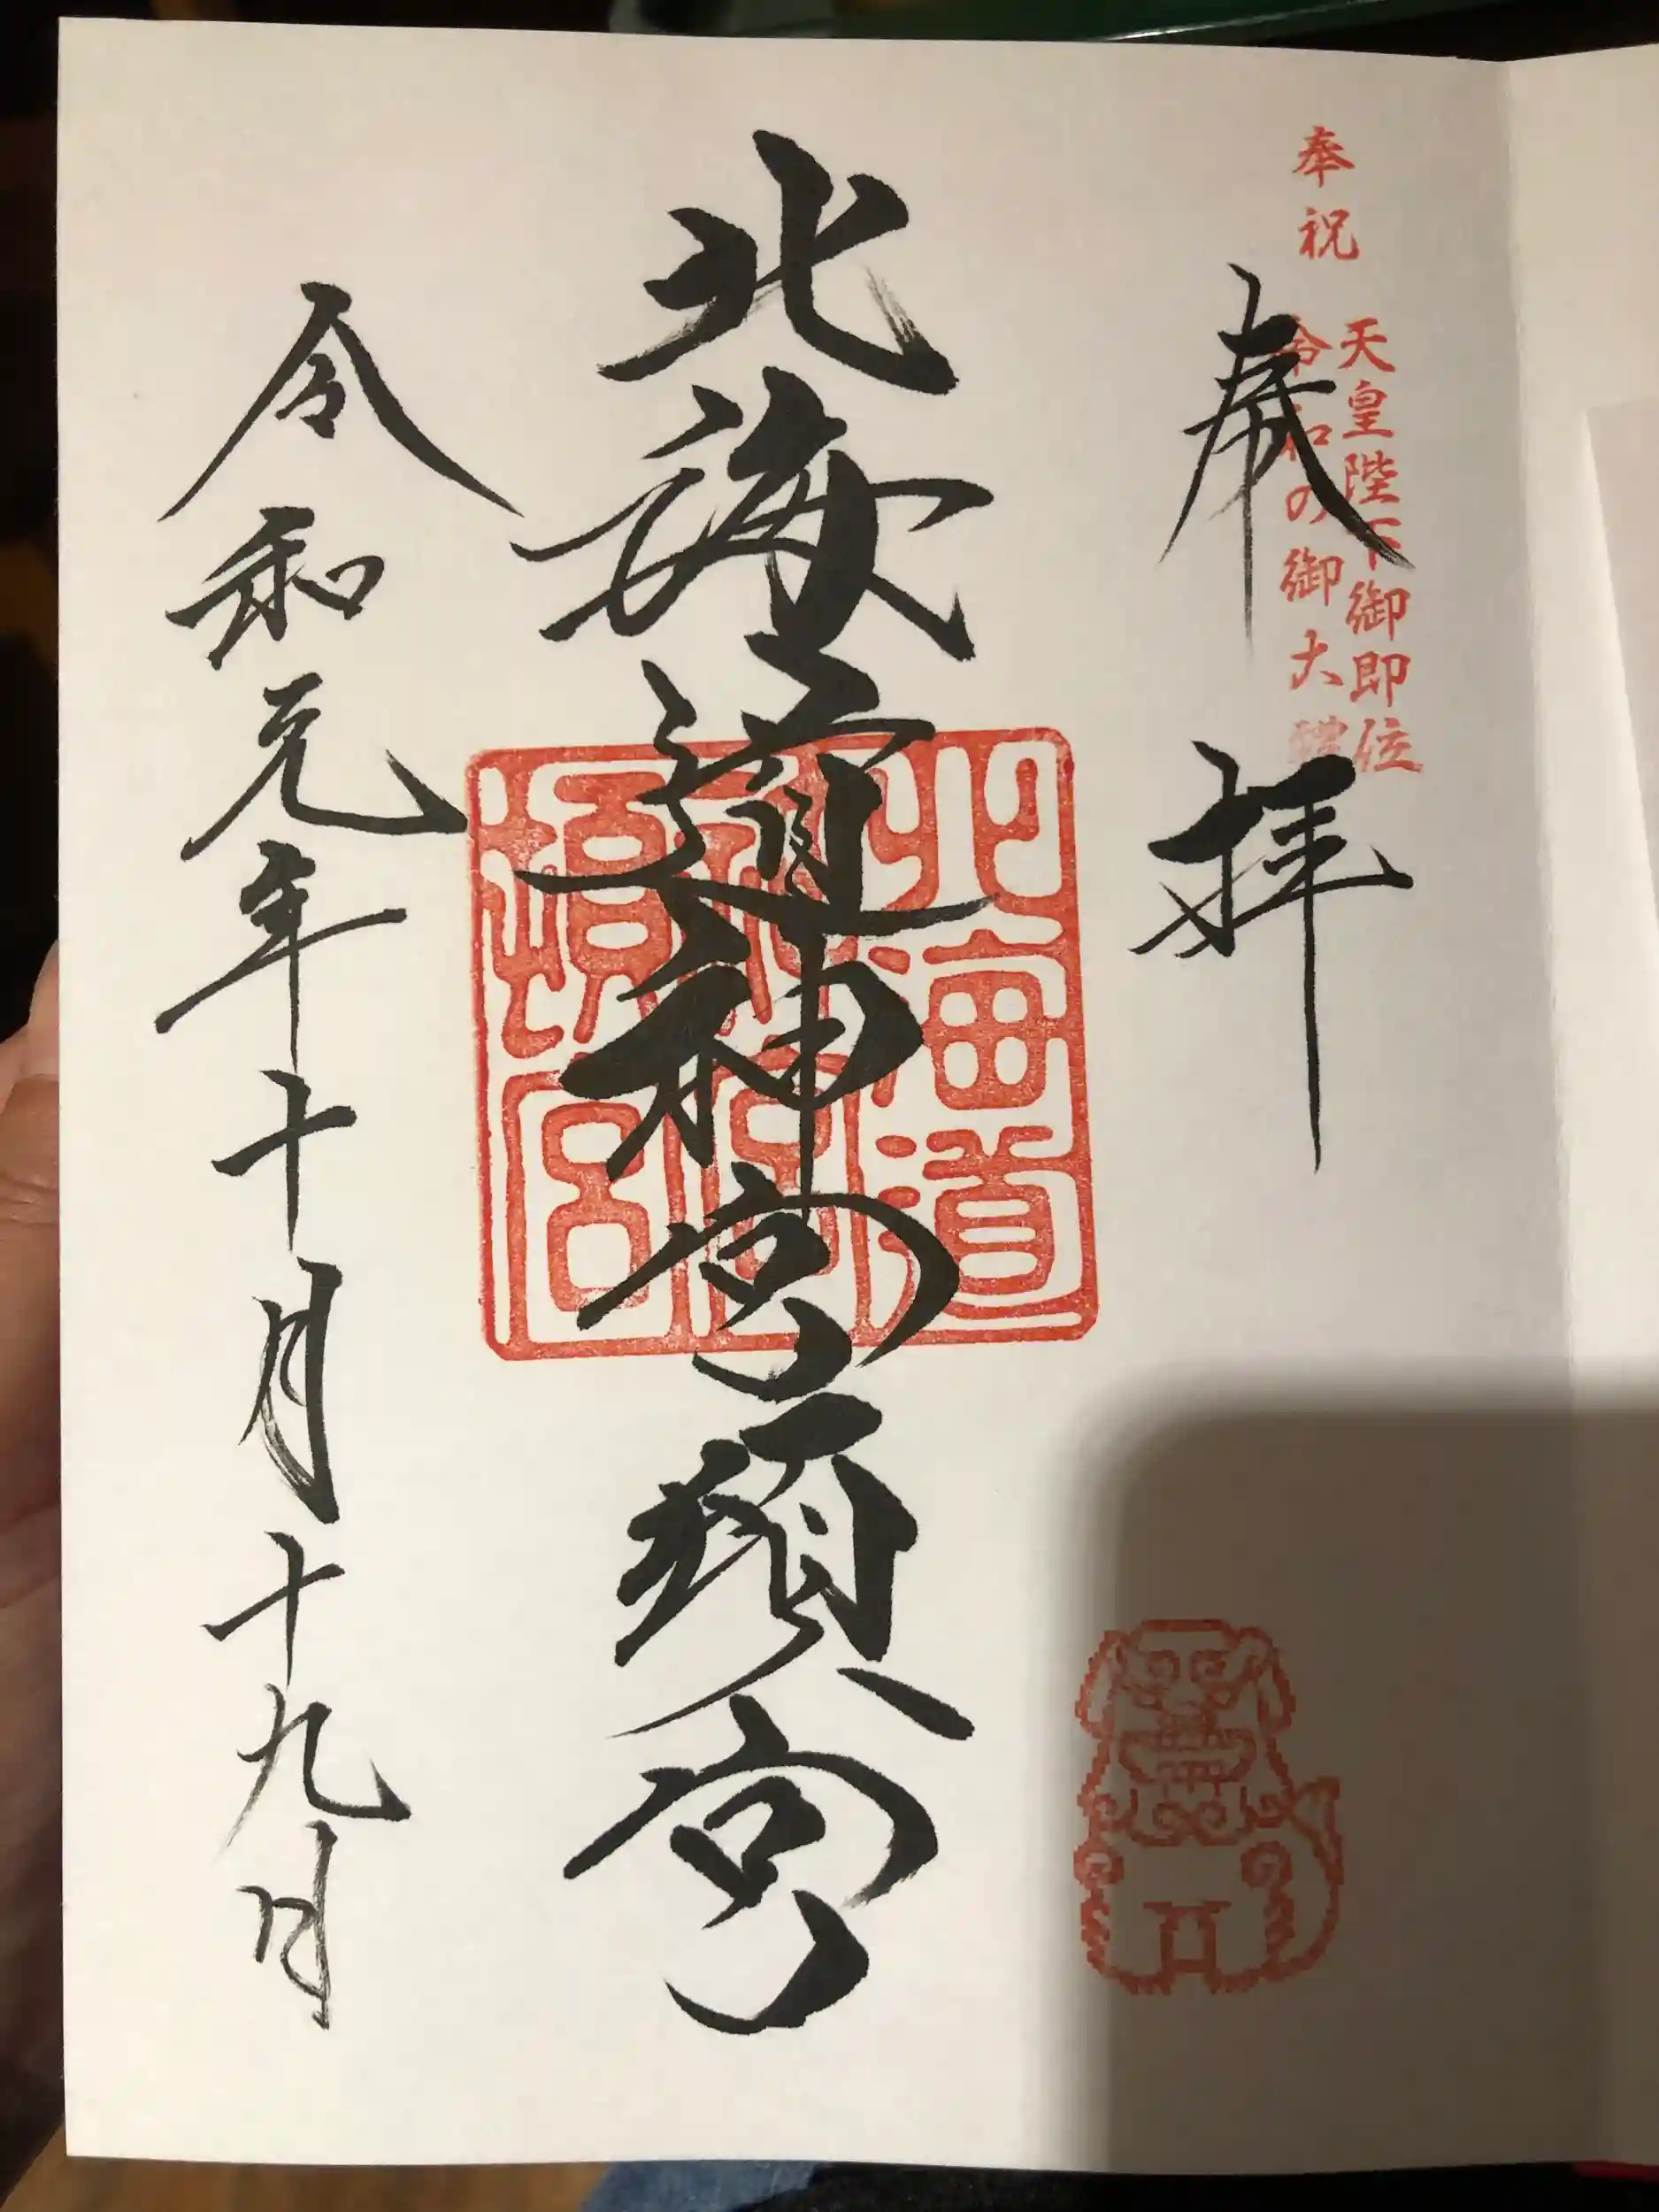 奉祝
天皇陛下御即位
令和の御大禮
奉拝
北海道神宮頓宮
北海道
神宮
頓宮
令和元年十月十九日